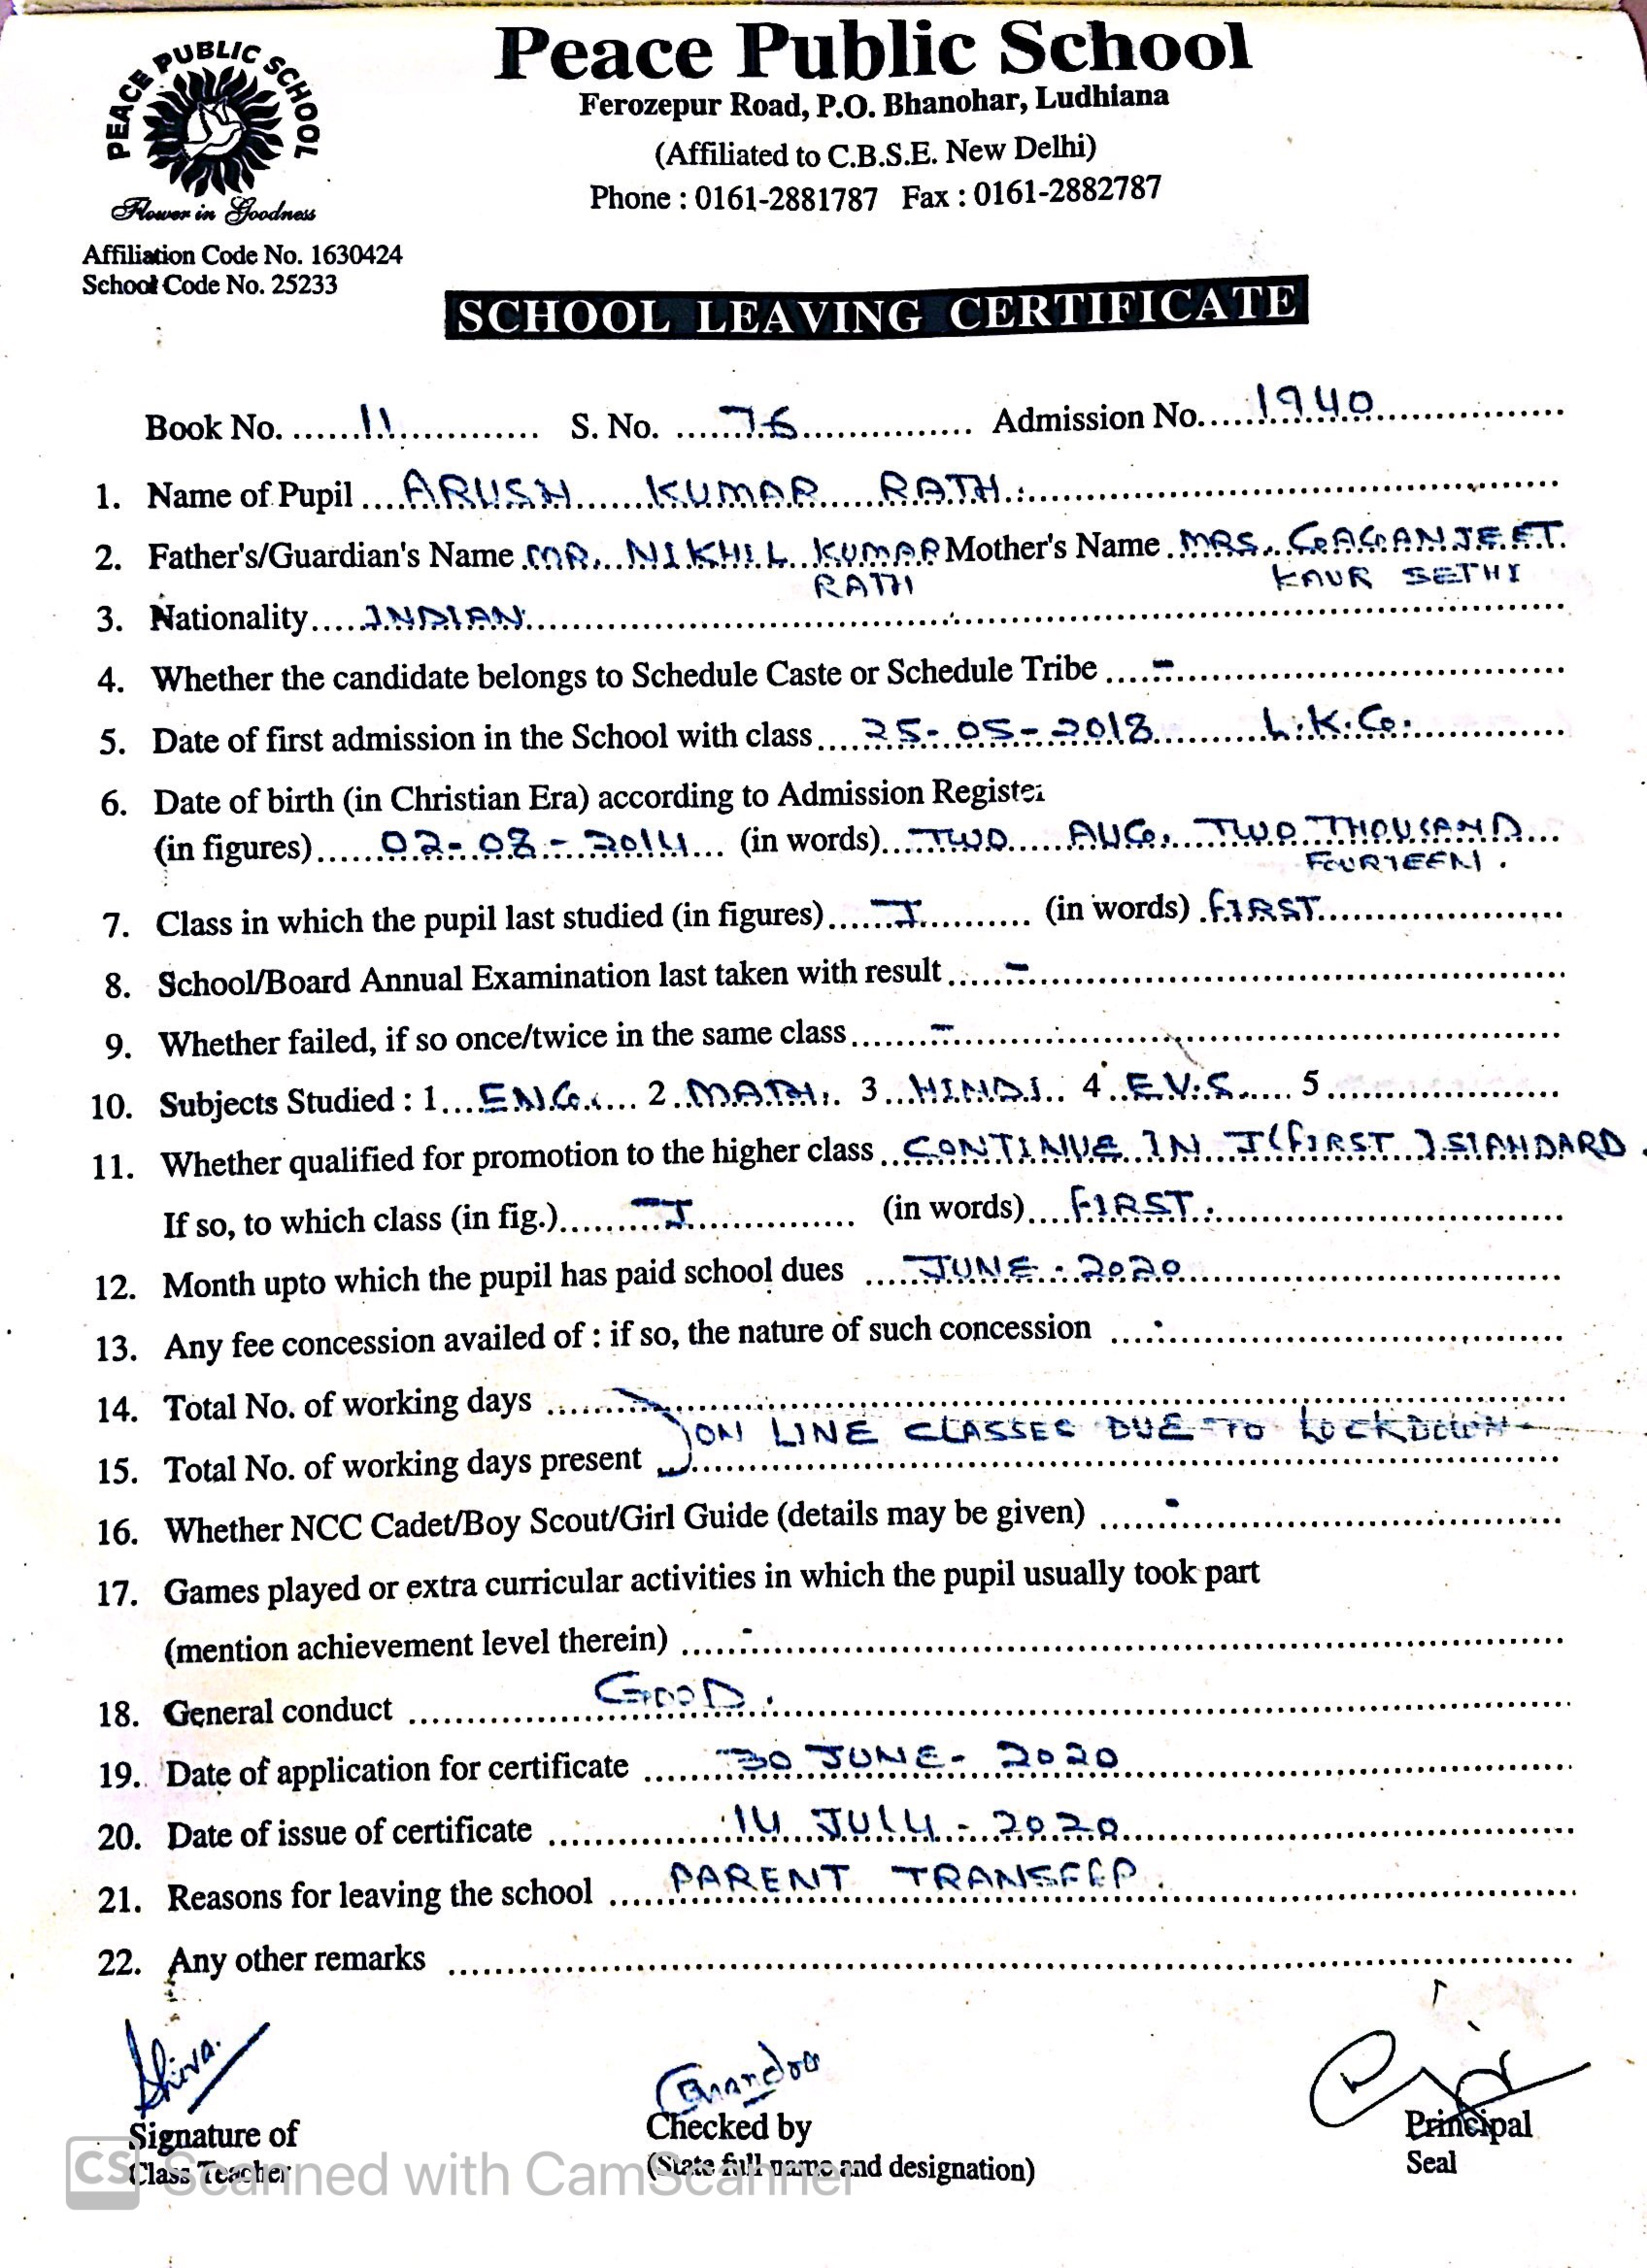 PEACE PUBLIC SCHOOL
Flower in Goodness
Affiliation Code No. 1630424
School Code No. 25233
Peace Public School
Ferozepur Road, P.O. Bhanohar, Ludhiana
(Affiliated to C.B.S.E. New Delhi)
Phone : 0161-2881787 Fax : 0161-2882787
SCHOOL LEAVING CERTIFICATE
Book No. 11 S. No. 76 Admission No. 1940
1. Name of Pupil ARUSH KUMAR RATH.
2. Father's/Guardian's Name MR. NIKHIL KUMAR Mother's Name MRS. GAGANJEET
RATH KAUR SETHI
3. Nationality INDIAN
4. Whether the candidate belongs to Schedule Caste or Schedule Tribe -
5. Date of first admission in the School with class 25-05-2018 L.K.G.
6. Date of birth (in Christian Era) according to Admission Register
(in figures) 02-08-2014 (in words) TWO AUG. TWO THOUSAND
FOURTEEN.
7. Class in which the pupil last studied (in figures) I (in words) FIRST
8. School/Board Annual Examination last taken with result -
9. Whether failed, if so once/twice in the same class -
10. Subjects Studied : 1 ENG. 2 MATH. 3 HINDI 4 E.V.S 5
11. Whether qualified for promotion to the higher class CONTINUE IN I (FIRST) STANDARD.
If so, to which class (in fig.) I (in words) FIRST.
12. Month upto which the pupil has paid school dues JUNE - 2020
13. Any fee concession availed of : if so, the nature of such concession -
14. Total No. of working days
ON LINE CLASSES DUE TO LOCKDOWN
15. Total No. of working days present
16. Whether NCC Cadet/Boy Scout/Girl Guide (details may be given) -
17. Games played or extra curricular activities in which the pupil usually took part
(mention achievement level therein) -
18. General conduct GOOD.
19. Date of application for certificate 30 JUNE - 2020
20. Date of issue of certificate 14 JULY - 2020
21. Reasons for leaving the school PARENT TRANSFER.
22. Any other remarks
Shiva.
Signature of
Class Teacher
Checked by
(State full name and designation)
Principal
Seal
CS Scanned with CamScanner